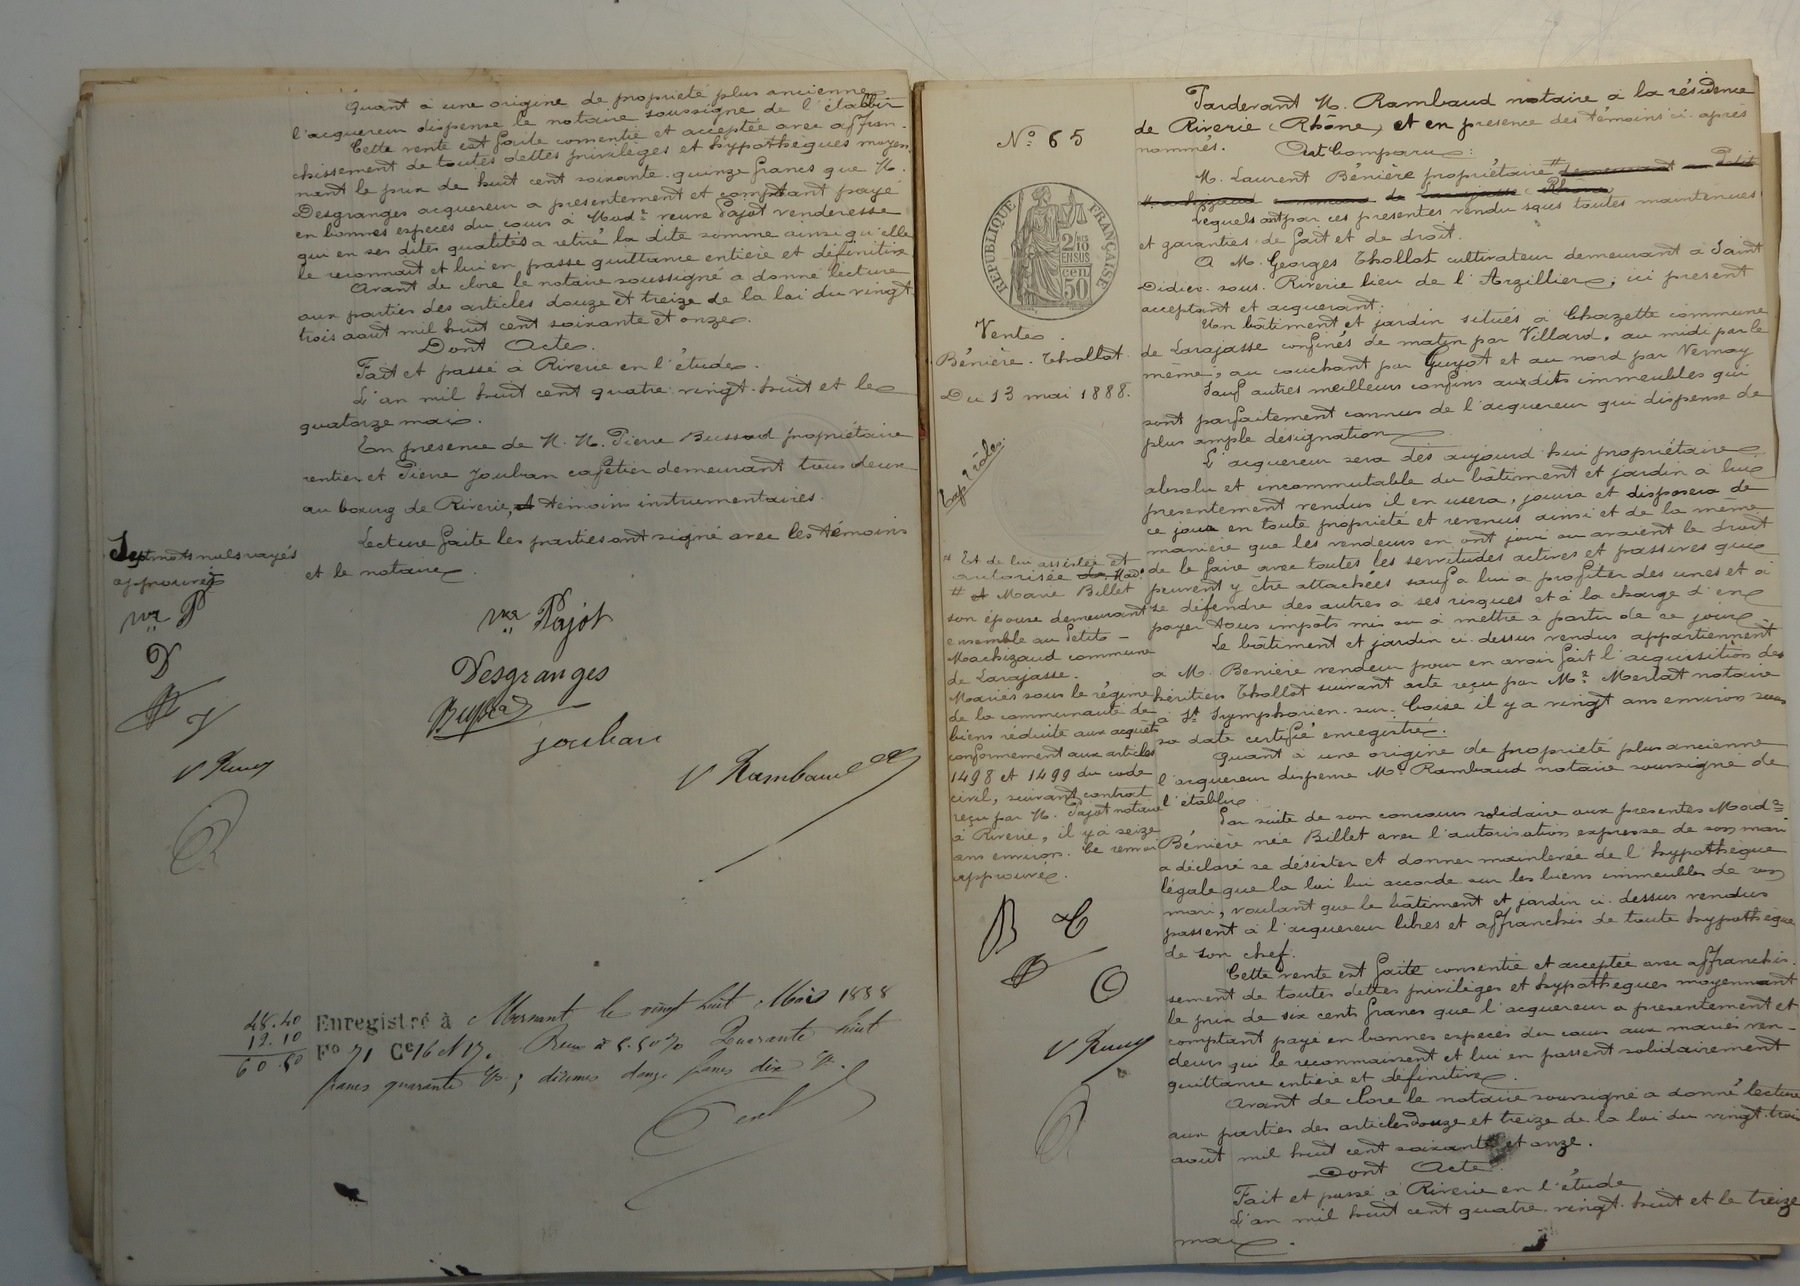 Quant à une origine de propriété plus ancienne
l'acquereur dispense le notaire soussigné de l'établir
Cette vente est faite consentie et acceptée avec affran-
chissement de toutes dettes privilèges et hypothèques moyen
nant le prix de huit cent soixante-quinze francs que M.
Desgranges acquereur a présentement et comptant payé
en bonnes espèces du cours à Mad.e veuve Pajot venderesse
qui en ses dites qualités a retiré la dite somme ainsi qu'elle
le reconnait et lui en passe quittance entière et définitive
Avant de clore le notaire soussigné a donné lecture
aux parties des articles douze et treize de la loi du vingt
trois août mil huit cent soixante et onze.
Dont Acte.
Fait et passé à Riverie en l'étude.
L'an mil huit cent quatre-vingt-huit et le
quatorze mai.
En présence de M. M. Pierre Bussod propriétaire
rentier et Pierre Jouban cafetier demeurant tous deux
au bourg de Riverie, témoins instrumentaires.
Lecture faite les parties ont signé avec les témoins
et le notaire.
Sept mots nuls rayés
approuvés
vve P
D
J
vve Pajot
Desgranges
Bussod
jouban
V Rambaud
48.40
12.10
60.50
Enregistré à Mornant le vingt huit Mai 1888
Fo 71 Ce 16 et 17. Reçu à 5.50 % Quarante huit
francs quarante c/s; décimes douze francs dix c/s.
No 65
REPUBLIQUE FRANÇAISE
2/10 EN SUS
50 cen
Vente.
Bénière-Thollot
Du 13 mai 1888.
Pardevant M. Rambaud notaire à la résidence
de Riverie (Rhône) et en présence des témoins ci-après
nommés.
Ont Comparu:
M. Laurent Bénière propriétaire # demeurant au Petit
Machizaud commune de Larajasse (Rhône)
Lequels ont par ces présentes vendu sous toutes maintenues
et garanties de fait et de droit.
A M. Georges Thollot cultivateur demeurant à Saint
Didier-sous-Riverie lieu de l'Arzillier, ici présent
acceptant et acquerant:
Un bâtiment et jardin situés à Chazette commune
de Larajasse confinés de matin par Villard, au midi par le
même, au couchant par Guyot et au nord par Vernay
Sauf autres meilleurs confins auxdits immeubles qui
sont parfaitement connus de l'acquereur qui dispense de
plus ample désignation.
L'acquereur sera dès aujourd'hui propriétaire
absolu et incommutable du bâtiment et jardin à lui
présentement vendus il en usera, jouira et disposera de
ce jour en toute propriété et revenus ainsi et de la même
manière que les vendeurs en ont joui ou avaient le droit
de le faire avec toutes les servitudes actives et passives qui
peuvent y être attachées sauf à lui à profiter des unes et à
se défendre des autres à ses risques et à la charge d'en
payer tous impôts mis ou à mettre à partir de ce jour
Le bâtiment et jardin ci-dessus vendus appartiennent
à M. Bénière vendeur pour en avoir fait l'acquisition des
héritiers Thollot suivant acte reçu par Me Merlat notaire
à St Symphorien-sur-Coise il y a vingt ans environ sous
sa date certifié enregistré.
Quant à une origine de propriété plus ancienne
l'acquereur dispense Me Rambaud notaire soussigné de
l'établir.
Par suite de son concours solidaire aux présentes Mad.e
Bénière née Billet avec l'autorisation expresse de son mari
a déclaré se désister et donner mainlevée de l'hypothèque
légale que la loi lui accorde sur les biens immeubles de son
mari, voulant que le bâtiment et jardin ci-dessus vendus
passent à l'acquereur libres et affranchis de toute hypothèque
de son chef.
Cette vente est faite consentie et acceptée avec affranchis-
sement de toutes dettes privilèges et hypothèques moyennant
le prix de six cents francs que l'acquereur a présentement et
comptant payé en bonnes espèces du cours aux mariés ven-
deurs qui le reconnaissent et lui en passent solidairement
quittance entière et définitive.
Avant de clore le notaire soussigné a donné lecture
aux parties des articles douze et treize de la loi du vingt-trois
août mil huit cent soixante et onze.
Dont Acte.
Fait et passé à Riverie en l'étude
L'an mil huit cent quatre-vingt-huit et le treize
mai.
# Et de lui assistée et
autorisée Mad.e
# Marie Billet
son épouse demeurant
ensemble au Petit-
Machizaud commune
de Larajasse.
Mariés sous le régime
de la communauté de
biens réduite aux acquêts
conformément aux articles
1498 et 1499 du code
civil, suivant contrat
reçu par M. Pajot notaire
à Riverie, il y a seize
ans environ. Ce renvoi
approuvé.
B